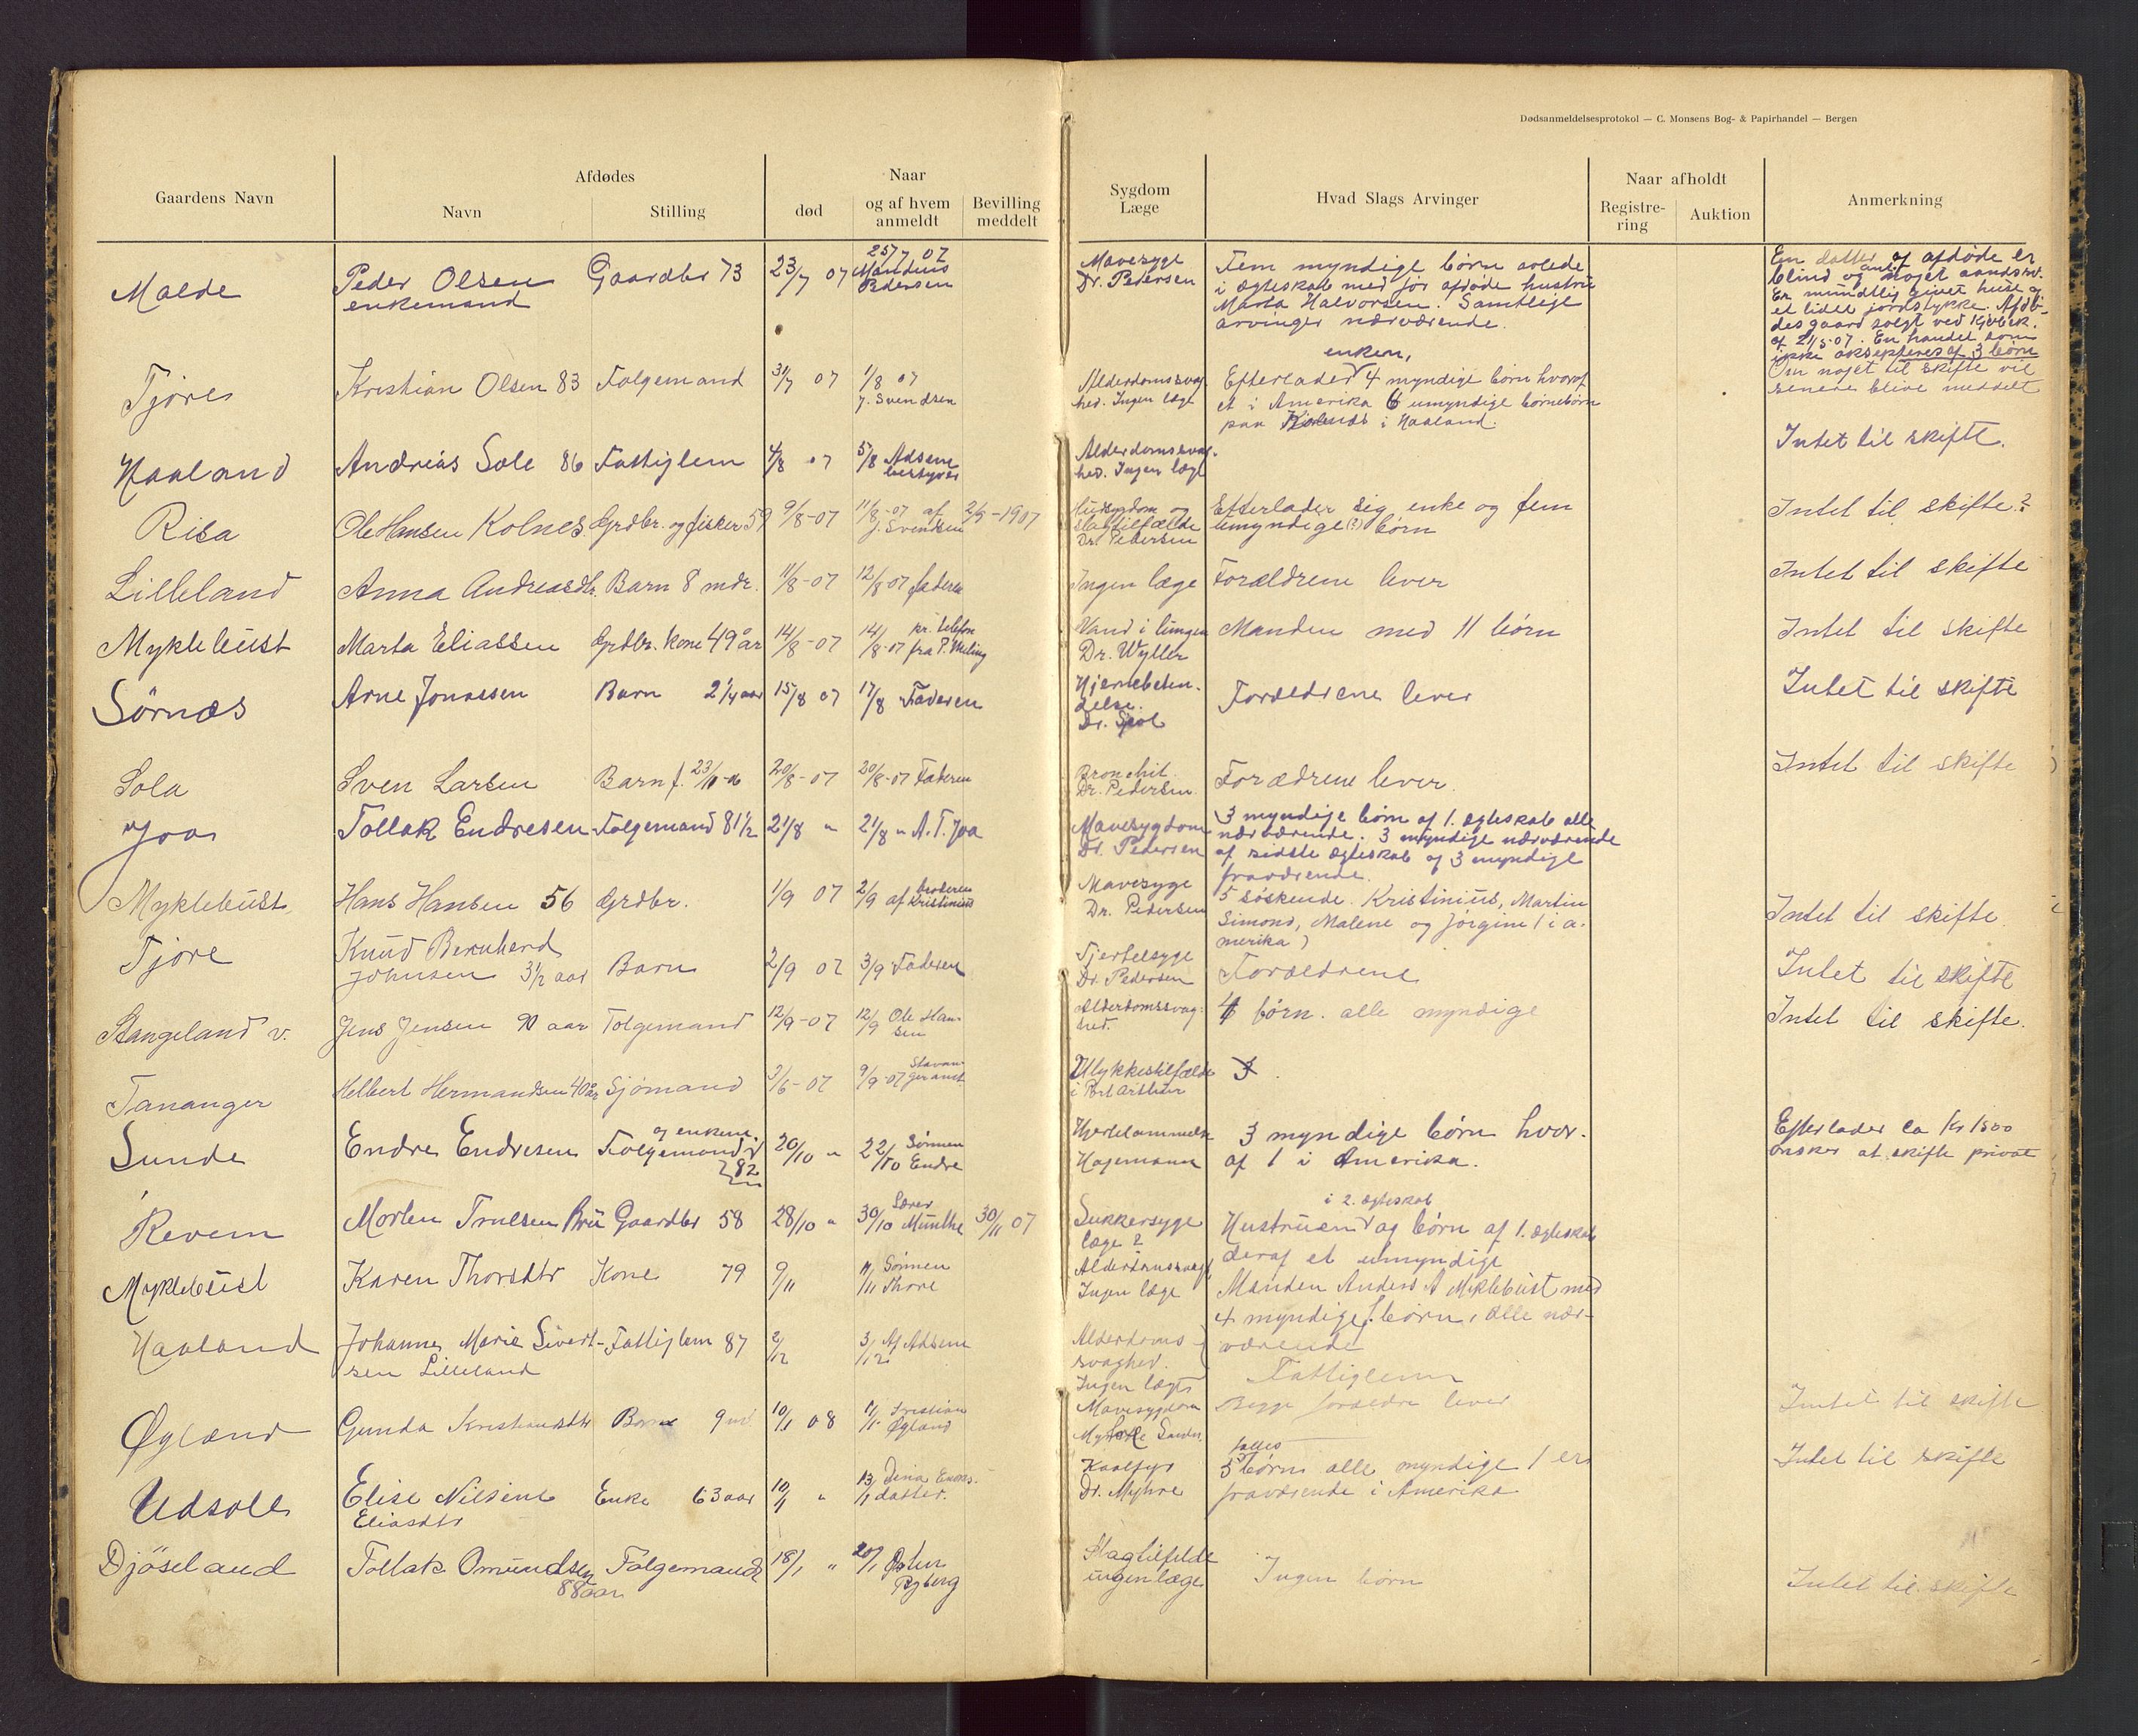 Dødsanmeldelsesprotokol — C. Monsens Bog- & Papirhandel — Bergen
Gaardens Navn
Afdødes
Navn
Stilling
Naar
død
og af hvem anmeldt
Bevilling meddelt
Sygdom Læge
Hvad Slags Arvinger
Naar afholdt
Registre-ring
Auktion
Anmerkning
Malde
Peder Olsen
enkemand
Gaardbr 73
23/7 07
25/7 07
Mandius
Pedersen
Mavesyge
Dr. Pedersen
Fem myndige børn avlede
i ægteskab med før afdøde hustru
Marta Halvorsen. Samtlige
arvinger nærværende.
En datter af afdøde er
blind og noget aandssv.
Er mundtlig givet huse og
et lidet jordstykke. Afdø-
des gaard solgt ved kjøbek.
af 21/5-07. En handel som
ikke aksepteres af 3 børn
Om noget til skifte vil
senere blive meddelt
Tjøre
Kristian Olsen 83
Følgemand
31/7 07
1/8 07
J. Svendsen
Alderdomssvag-
hed. Ingen læge
enken,
Efterlader 4 myndige børn hvoraf
et i Amerika 6 umyndige børnebørn
paa i Haaland.
Haaland
Andreas Sole 86
Fattiglem
4/8 07
5/8 Adsene
bestyrer
Alderdomssvag-
hed. Ingen læge
Intet til skifte.
Risa
Ole Hansen Kolnes
Grdbr. og fisker 59
9/8-07
11/8-07 af
J. Svendsen
2/9-1907
Hudsygdom og
slagtilfælde
Dr. Pedersen
Efterlader sig enke og fem
umyndige (?) børn
Intet til skifte?
Lilleland
Anna Andreasdtr.
Barn 8 mdr.
11/8-07
12/8-07 faderen
Ingen læge
Forældrene lever
Intet til skifte
Myklebust
Marta Eliassen
Grdbr. kone 49 år
14/8-07
14/8-07 pr. telefon
fra P. Meling
Vand i lungen
Dr. Wyller
Manden med 11 børn
Intet til skifte
Sørnæs
Arne Jonassen
Barn 2 1/4 aar
15/8 07
17/8 Faderen
Hjernebetæn-
delse.
Dr.
Forældrene lever
Intet til skifte
Sola
Sven Larsen
Barn f. 23/11-06
20/8-07
20/8-07 Faderen
Bronchit.
Dr. Pedersen.
Forædrene lever.
Intet til skifte
Joa
Tollak Endresen
Følgemand 81 1/2
21/8 "
21/8 " A. T. Joa
Mavesygdom
Dr. Pedersen
3 myndige børn af 1. ægteskab alle
nærværende. 3 myndige nærværende
af sidste ægteskab og 3 myndige
fraværende.
Myklebust
Hans Hansen 56
Grdbr.
1/9 07
2/9 af broderen
Kristinius
Mavesyge
Dr. Pedersen
5 søskende. Kristinius, Martin
Simond, Malene og Jørgine (i a-
merika)
Intet til skifte
Tjøre
Knud Bernhard
Johnsen 3 1/2 aar
Barn
2/9 07
3/9 Faderen
Kjertelsyge
Dr. Pedersen
Forældrene
Intet til skifte
Stangeland v.
Jens Jensen 90 aar
Følgemand
12/9-07
12/9 Ole Han-
sen
Alderdomssvag-
hed.
4 børn. alle myndige
Intet til skifte.
Tananger
Helbert Hermandsen 40 år
Sjømand
3/6-07
9/9-07 Stavan-
ger amt
Ulykkestilfælde
i Port Arthur
3
Sunde
Endre Endresen
og enkem.
Følgemand
82
20/10 "
22/10 Sønnen
Endre
Hjertelammelse
Hagemann
3 myndige børn hvor-
af 1 i Amerika.
Efterlader ca kr 1500
ønsker at skifte privat
Revem
Morten Trulsen Bru
Gaardbr 58
28/10 "
30/10 Lærer
Munthe
30/11 07
Sukkersyge
læge?
i 2. ægteskab
Hustruen og børn af 1. ægteskab
deraf et umyndige
Myklebust
Karen Thorsdtr
Kone 79
9/11
11/11 Sønnen
Thore
Alderdomssvagh.
Ingen læge
Manden Anders A Myklebust med
4 myndige børn, alle nær-
værende
Haaland
Johanne Marie Sivert-
sen Lilleland
Fattiglem 87
2/12
3/12 Af Adsene
Alderdoms-
svaghed.
Ingen læge
Fattiglem
Øyland
Gunda Kristiansdtr
Barn 9 md
10/1 08
11/1 Kristian
Øyland
Mavesygdom
Begge foræeldre lever
Intet til skifte
Udsole
Elise Nilsine
Eliasdtr
Enke 63 aar
10/1 "
13/1 Dina
datter.
Koldfyr
Dr. Myhre
fælles
5 børn alle myndige 1 er
fraværende i Amerika
Intet til skifte
Djøseland
Tollak Omundsen
88 aar
Følgemand
18/1 "
20/1
Slagtilfælde
ingen læge
Ingen børn
Intet til skifte